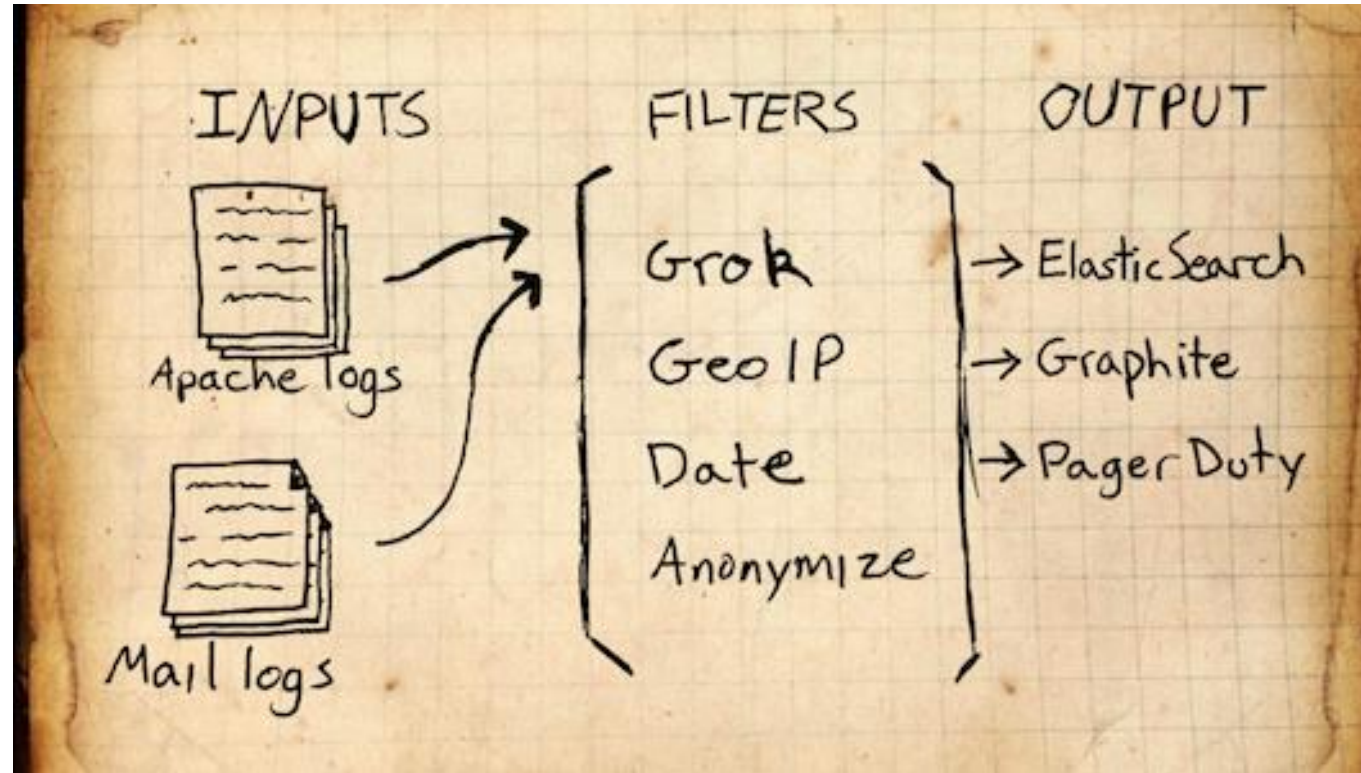 INPUTS
Apache logs
Mail logs
FILTERS
Grok
GeoIP
Date
Anonymize
OUTPUT
→ ElasticSearch
→ Graphite
→ PagerDuty